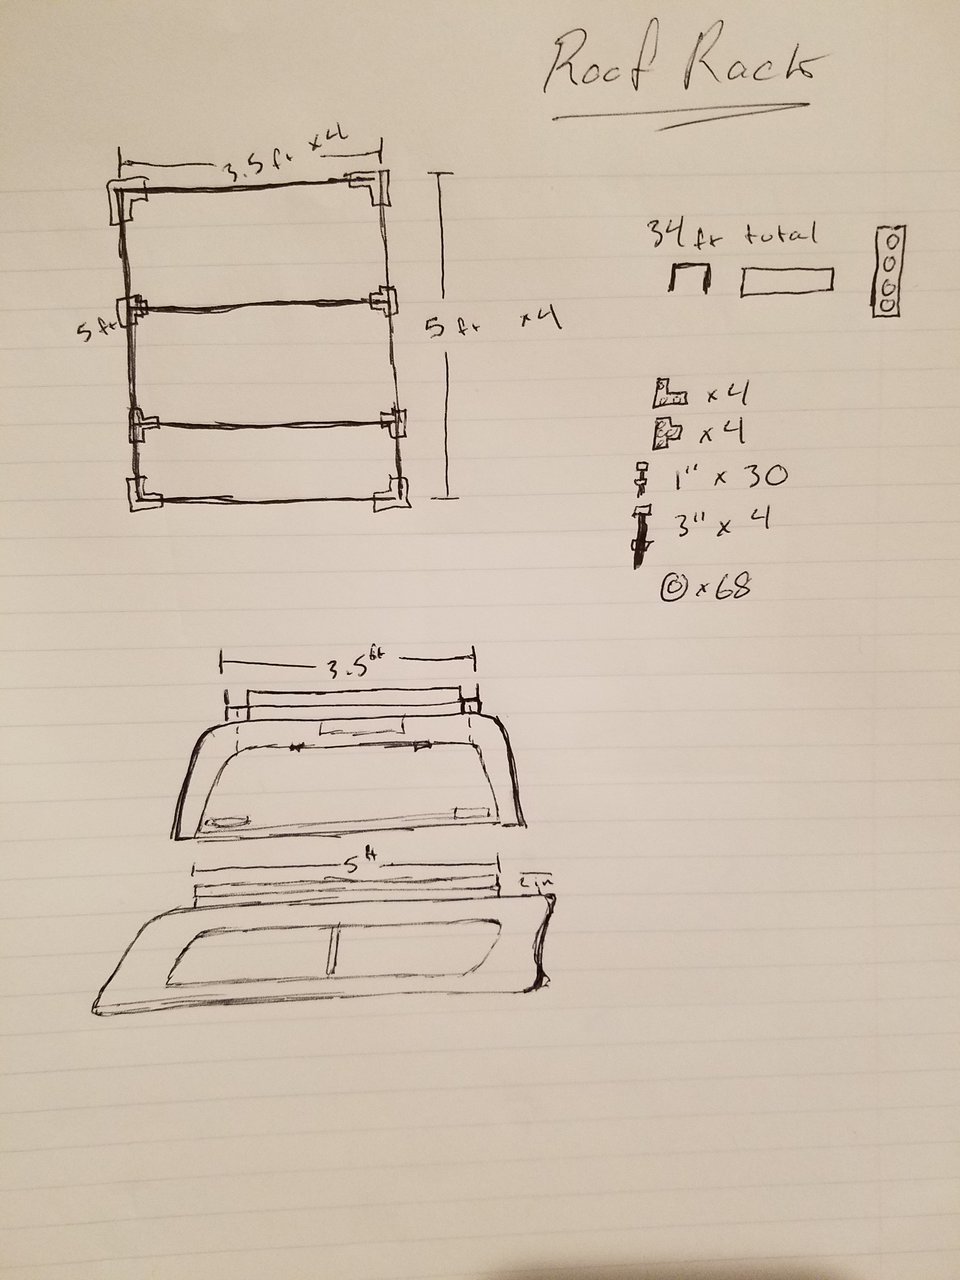 Roof Rack
3.5 ft x4
34 ft total
5 ft
5 ft x4
x4
x4
1" x 30
3" x 4
x 68
3.5 ft
5 ft
2 in